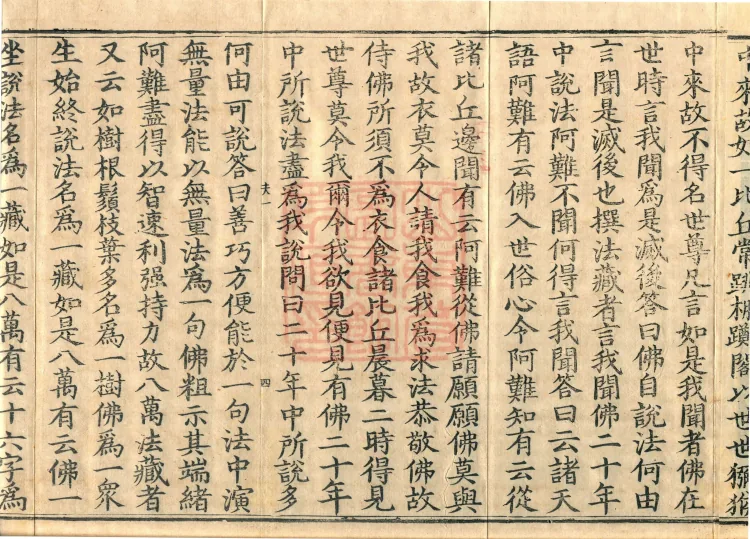 中來故如一比丘常閣以世世獼猴
中來故不得名世尊凡言如是我聞者佛在
世時言我聞爲是滅後答曰佛自說法何由
言聞是滅後也撰法藏者言我聞佛二十年
中說法阿難不聞何得言我聞答曰云諸天
語阿難有云佛入世俗心令阿難知有云從
諸比丘邊聞有云阿難從佛請願願佛莫與
我故衣莫令人請我食我爲求法恭敬佛故
侍佛所須不爲衣食諸比丘晨暮二時得見
世尊莫令我爾令我欲見便見有佛二十年
中所說法盡爲我說問曰二十年中所說多
扶一 四
何由可說答曰善巧方便能於一句法中演
無量法能以無量法爲一句佛粗示其端緒
阿難盡得以智速利强持力故八萬法藏者
又云如樹根鬚枝葉多名爲一樹佛爲一衆
生始終說法名爲一藏如是八萬有云佛一
坐說法名爲一藏如是八萬有云十六字爲